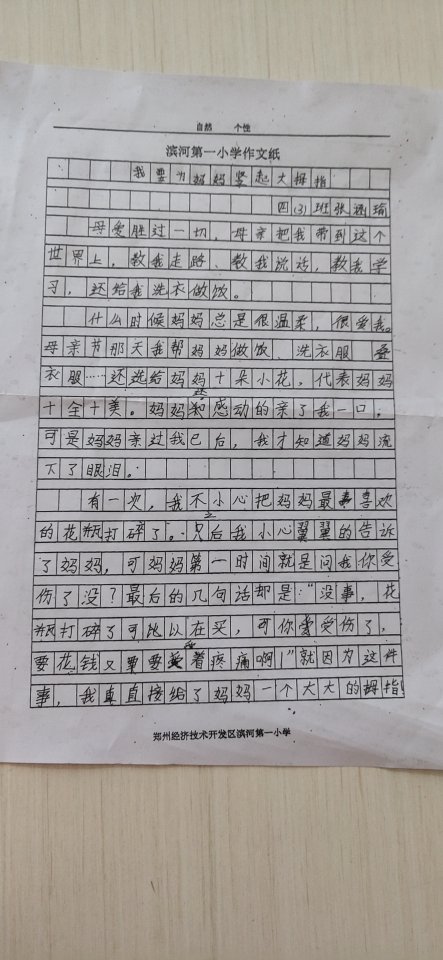 自然 个性
滨河第一小学作文纸
我要为妈妈竖起大拇指
四(3)班张涵瑜
母爱胜过一切，母亲把我带到这个
世界上，教我走路、教我说话，教我学
习，还给我洗衣做饭。
什么时候妈妈总是很温柔，很爱我。
母亲节那天我帮妈妈做饭、洗衣服 叠
衣服……还选给妈妈十朵小花，代表妈妈
十全十美。妈妈感动的亲了我一口，
可是妈妈亲过我已后，我才知道妈妈流
下了眼泪。
有一次，我不小心把妈妈最喜欢
的花瓶打碎了。之后我小心翼翼的告诉
了妈妈，可妈妈第一时间就是问我你受
伤了没？最后的几句话却是："没事，花
瓶打碎了可比以在买，可你受伤了，
要花钱又要忍着疼痛啊！"就因为这件
事，我直接给了妈妈一个大大的拇指！
郑州经济技术开发区滨河第一小学